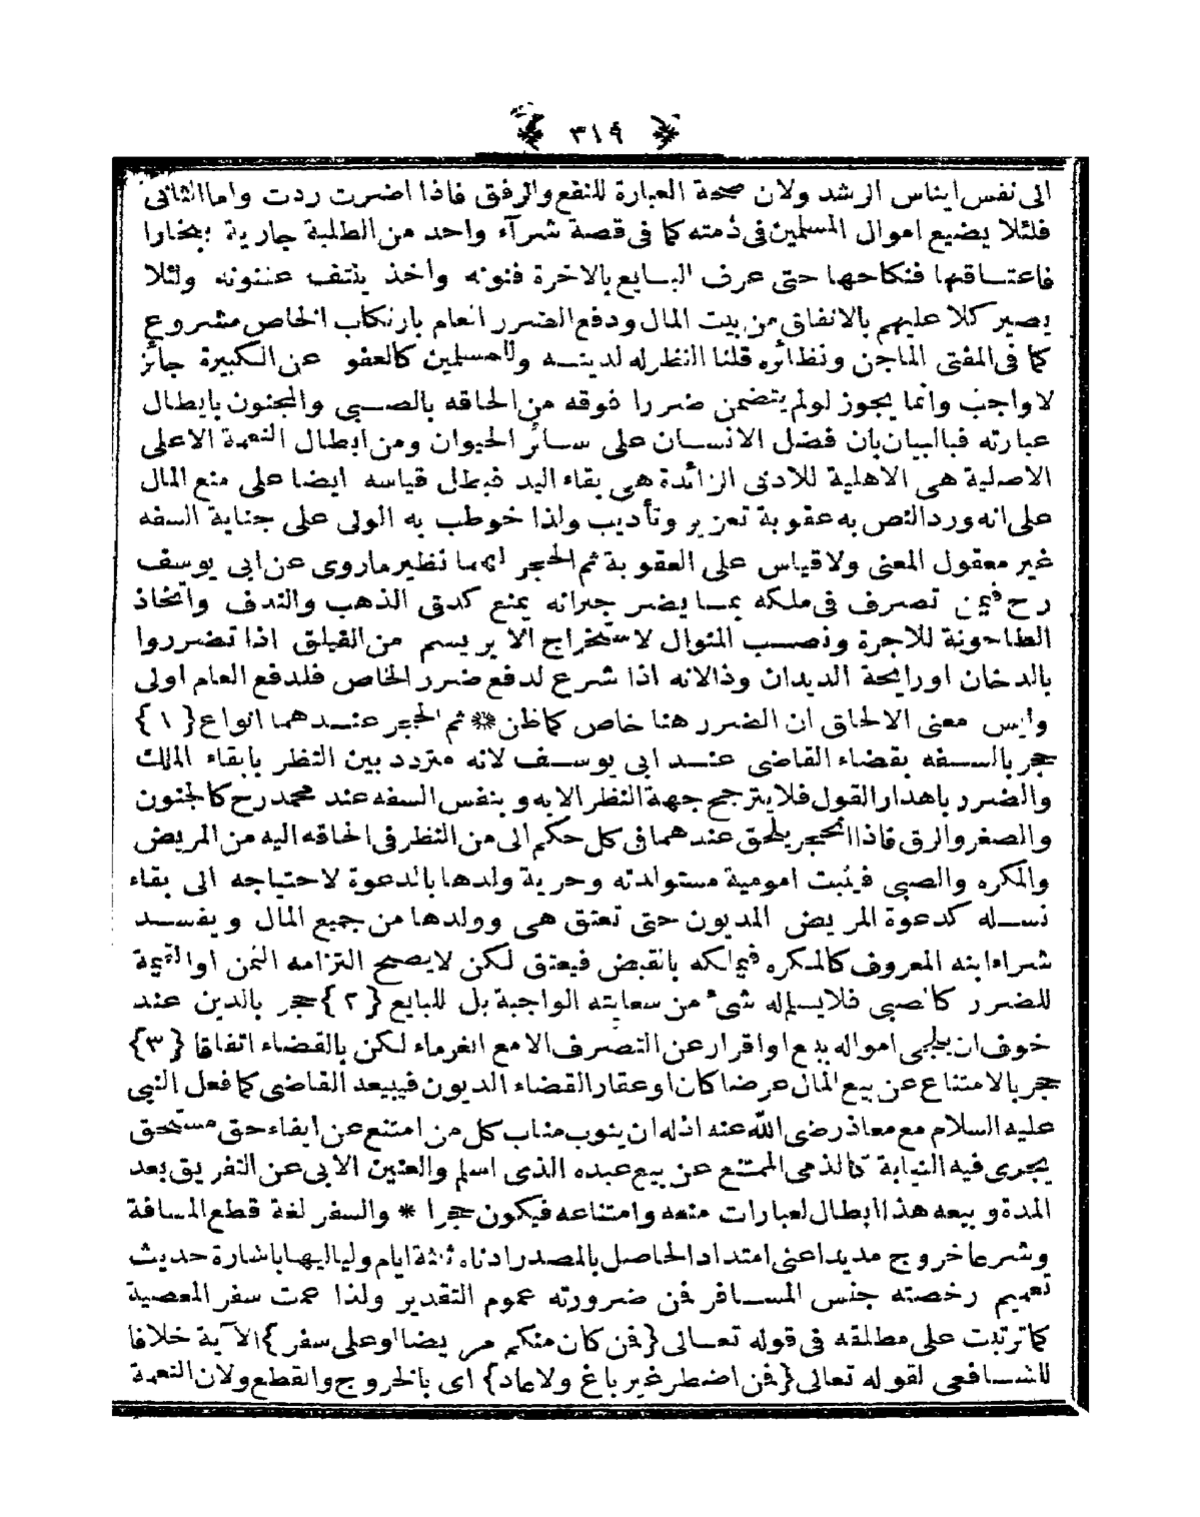 ﴿ ٣١٩ ﴾
الى نفس ايناس الرشد ولان صحة العبارة للنفع والرفق فاذا اضرت ردت واما الثانى
فلئلا يضيع اموال المسلمين فى ذمته كما فى قصة شرآء واحد من الطلبة جارية ببخارا
فاعتاقها فنكاحها حتى عرف البايع بالاخرة فنونه واخذ ينتف عثنونه ولئلا
يصير كلا عليهم بالانفاق من بيت المال ودفع الضرر العام بارتكاب الخاص مشروع
كما فى المفتى الماجن ونظائره قلنا النظر له لدينه وللمسلمين كالعفو عن الكبيرة جائز
لا واجب وانما يجوز لو لم يتضمن ضررا فوقه من الحاقه بالصبى والمجنون بابطال
عبارته فبالبيان بان فضل الانسان على سائر الحيوان ومن ابطال النعمة الاعلى
الاصلية هى الاهلية للادنى الزائدة هى بقاء اليد فبطل قياسه ايضا على منع المال
على انه ورد النص به عقوبة تعزير وتأديب ولذا خوطب به الولى على جناية السفه
غير معقول المعنى ولا قياس على العقوبة ثم الحجر لهما نظير ماروى عن ابى يوسف
رح فيمن تصرف فى ملكه بما يضر جيرانه يمنع كدق الذهب والندف واتخاذ
الطاحونة للاجرة ونصب المنوال لاستخراج الابريسم من الفيلق اذا تضرروا
بالدخان او رايحة الديدان وذا لانه اذا شرع لدفع ضرر الخاص فلدفع العام اولى
وليس معنى الالحاق ان الضرر هنا خاص كما ظن * ثم الحجر عندهما انواع {١}
حجر بالسفه بقضاء القاضى عند ابى يوسف لانه متردد بين النظر بابقاء الملك
والضرر باهدار القول فلا يترجح جهة النظر الا به وبنفس السفه عند محمد رح كالجنون
والصغر والرق فاذا انحجر يلحق عندهما فى كل حكم الى من النظر فى الحاقه اليه من المريض
والمكره والصبى فيثبت امومية مستولدته وحرية ولدها بالدعوة لاحتياجه الى بقاء
نسله كدعوة المريض المديون حتى تعتق هى وولدها من جميع المال ويفسد
شراء ابنه المعروف كالمكره فيملكه بالقبض فيعتق لكن لا يصح التزامه الثمن او القيمة
للضرر كالصبى فلا يسلم له شئ من سعايته الواجبة بل للبايع {٢} حجر بالدين عند
خوف ان يلجى امواله ببيع او اقرار عن التصرف الا مع الغرماء لكن بالقضاء اتفاقا {٣}
حجر بالامتناع عن بيع المال عرضا كان او عقار القضاء الديون فيبيعه القاضى كما فعل النبى
عليه السلام مع معاذ رضى الله عنه اذ له ان ينوب مناب كل من امتنع عن ايفاء حق مستحق
يجرى فيه النيابة كالذمى الممتنع عن بيع عبده الذى اسلم والعنين الابى عن التفريق بعد
المدة وبيعه هذا ابطال لعبارات منعه وامتناعه فيكون حجرا * والسفر لغة قطع المسافة
وشرعا خروج مديد اعنى امتداد الحاصل بالمصدر ادناه ثلثة ايام ولياليها باشارة حديث
تعميم رخصته جنس المسافر فمن ضرورته عموم التقدير ولذا عمت سفر المعصية
كما ترتبت على مطلقه فى قوله تعالى {فمن كان منكم مريضا او على سفر} الآية خلافا
للشافعى لقوله تعالى {فمن اضطر غير باغ ولا عاد} اى بالخروج والقطع ولان النعمة